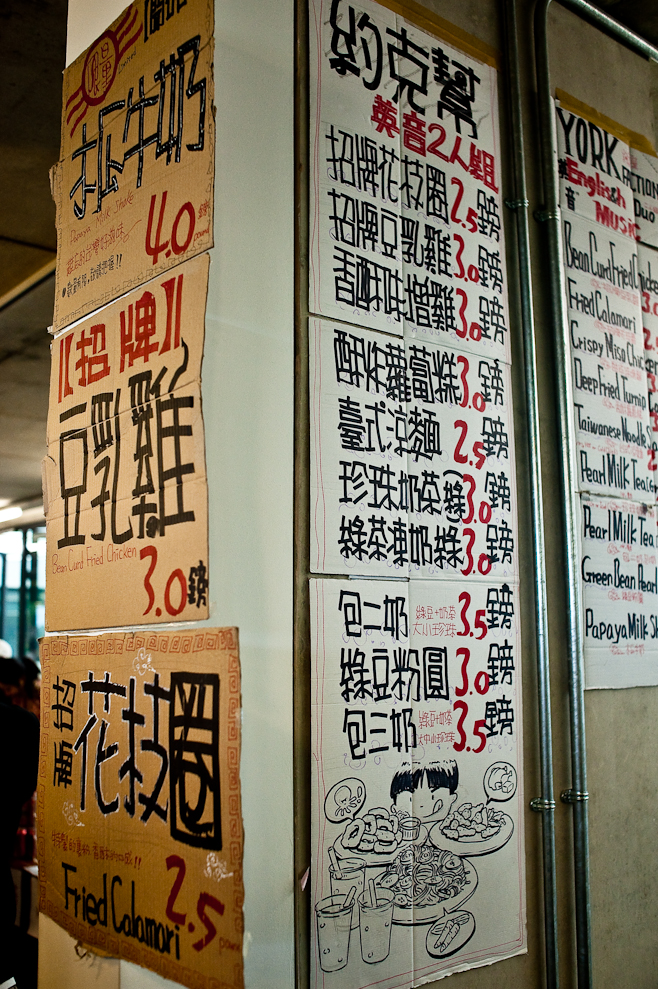 木瓜牛奶
Papaya Milk Shake
4.0
【招牌】
豆乳雞
Bean Curd Fried Chicken
3.0鎊
招牌
花枝圈
Fried Calamari
2.5 pound
約克幫
英音2人組
招牌花枝圈2.5鎊
招牌豆乳雞3.0鎊
香酥味增雞3.0鎊
酥炸蘿蔔糕3.0鎊
臺式涼麵2.5鎊
珍珠奶茶(綠)3.0鎊
綠茶凍奶綠3.0鎊
包二奶 綠豆+奶茶 大小珍珠 3.5鎊
綠豆粉圓3.0鎊
包三奶 綠豆+奶茶 大中小珍珠 3.5鎊
YORK FACTION
English Duo
英音 MUSIC
Bean Curd Fried Chicken
Fried Calamari
Crispy Miso Chicken
Deep Fried Turnip
Taiwanese Noodle
Pearl Milk Tea
Pearl Milk Tea
Green Bean
Papaya Milk